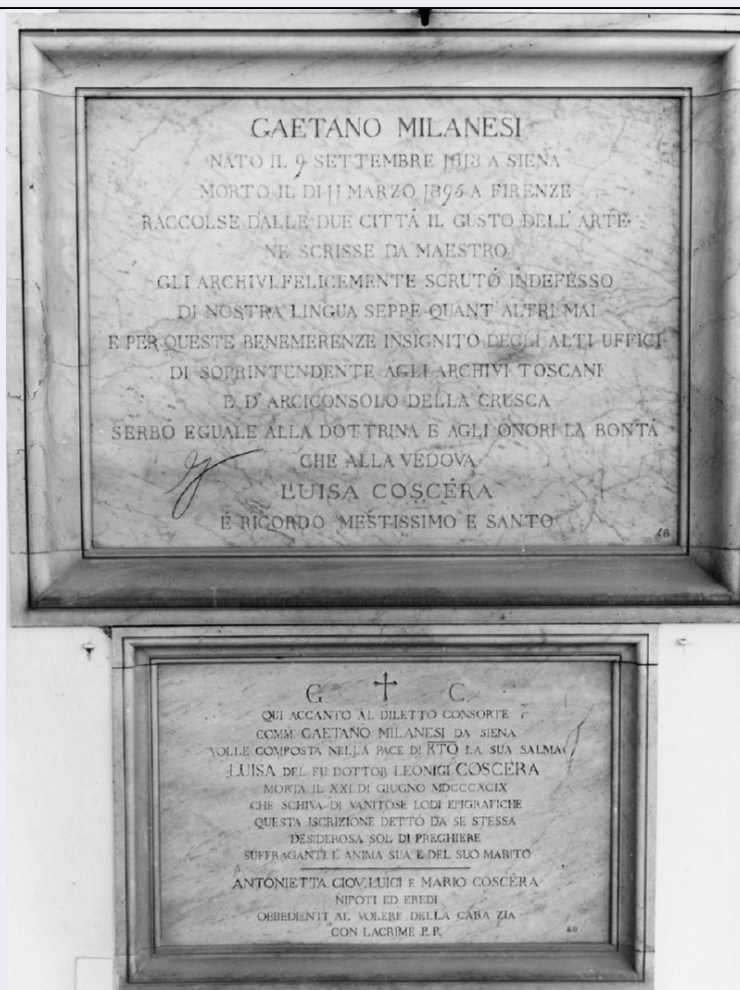 GAETANO MILANESI
NATO IL 9 SETTEMBRE 1813 A SIENA
MORTO IL DI 11 MARZO 1895 A FIRENZE
RACCOLSE DALLE DUE CITTÀ IL GUSTO DELL'ARTE
NE SCRISSE DA MAESTRO
GLI ARCHIVI FELICEMENTE SCRUTÒ INDEFESSO
DI NOSTRA LINGUA SEPPE QUANT'ALTRI MAI
E PER QUESTE BENEMERENZE INSIGNITO DEGLI ALTI UFFICI
DI SOPRINTENDENTE AGLI ARCHIVI TOSCANI
E D'ARCICONSOLO DELLA CRUSCA
SERBÒ EGUALE ALLA DOTTRINA E AGLI ONORI LA BONTÀ
CHE ALLA VEDOVA
LUISA COSCÉRA
È RICORDO MESTISSIMO E SANTO
48
G. ✝ C.
QUI ACCANTO AL DILETTO CONSORTE
COMM. GAETANO MILANESI DA SIENA
VOLLE COMPOSTA NELLA PACE DI XTO LA SUA SALMA
LUISA DEL FU DOTTOR LEONIGI COSCÉRA
MORTA IL XXI DI GIUGNO MDCCCXCIX
CHE SCHIVA DI VANITOSE LODI EPIGRAFICHE
QUESTA ISCRIZIONE DETTÒ DA SE STESSA
DESIDEROSA SOL DI PREGHIERE
SUFFRAGANTI L'ANIMA SUA E DEL SUO MARITO
ANTONIETTA GIOV. LUIGI E MARIO COSCÉRA
NIPOTI ED EREDI
OBBEDIENTI AL VOLERE DELLA CARA ZIA
CON LACRIME P. P.